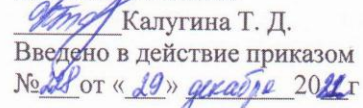 Калугина Т. Д.
Введено в действие приказом
№ 228 от « 29 » декабря 20 г